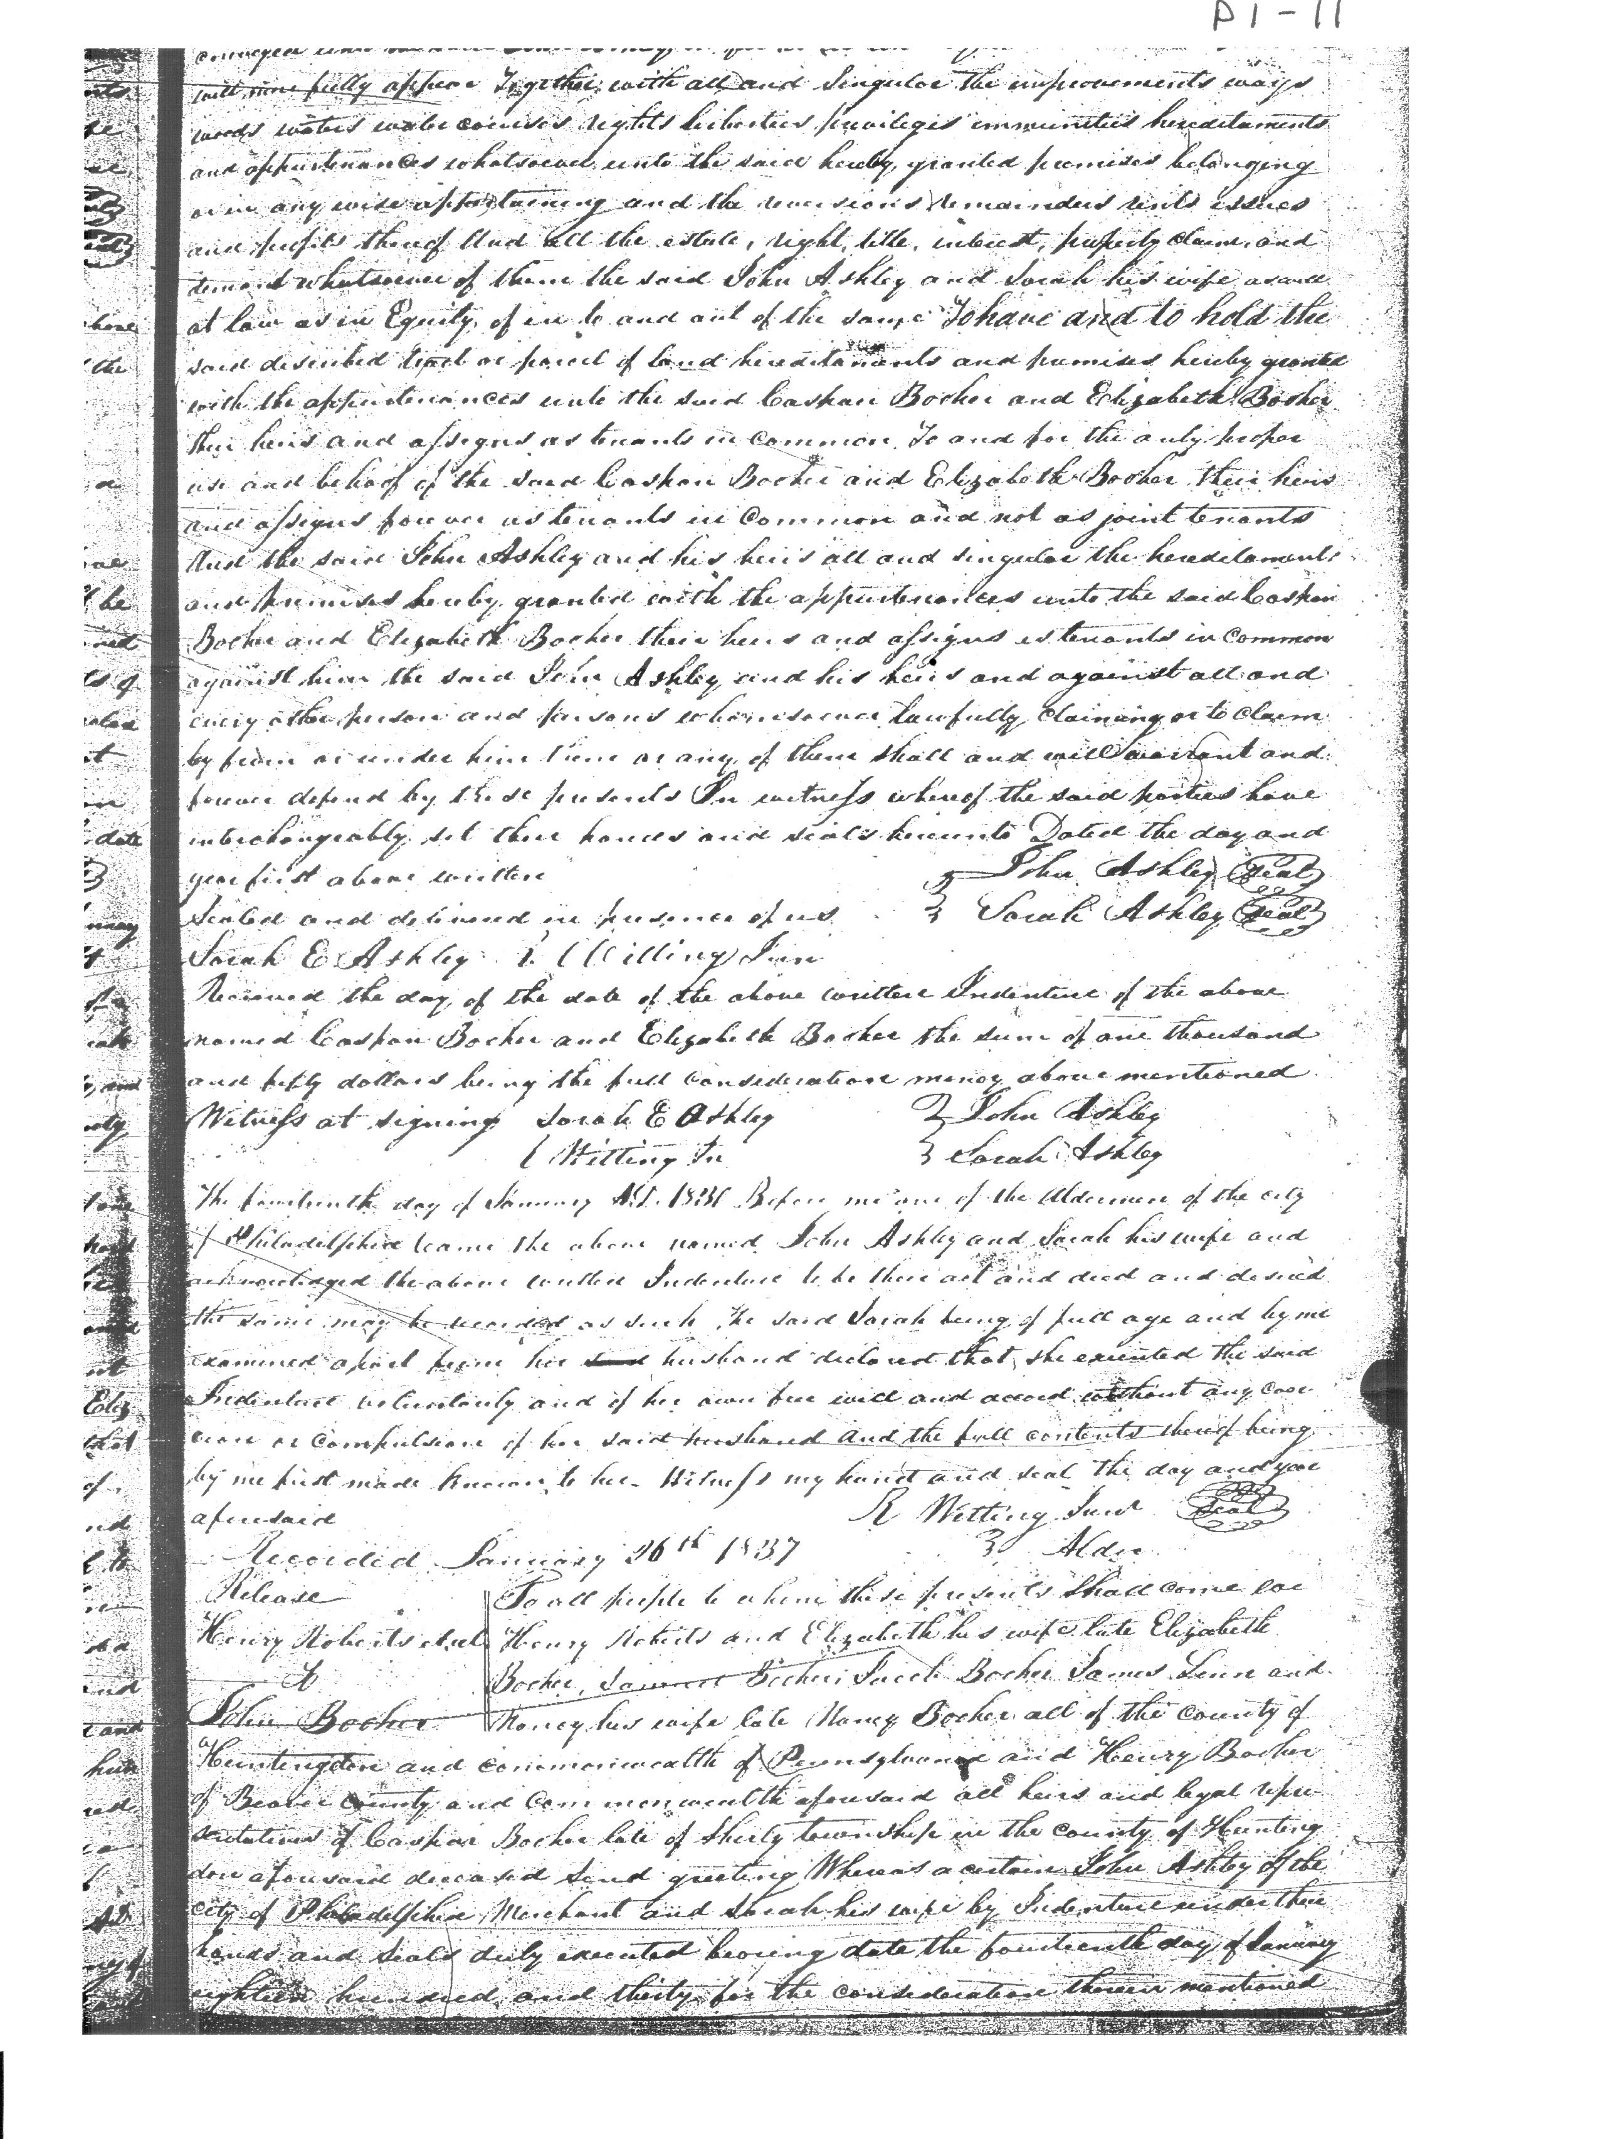 D1-11
will more fully appear Together with all and Singular the improvements ways
woods waters water courses rights liberties privileges immunities hereditaments
and appurtenances whatsoever unto the said hereby granted premises belonging
or in any wise appertaining and the reversions remainders rents issues
and profits thereof And all the estate, right, title, interest, property claim, and
demand whatsoever of them the said John Ashley and Sarah his wife as well
at law as in Equity, of in to and out of the same To have and to hold the
said described tract or parcel of land hereditaments and premises hereby granted
with the appurtenances unto the said Caspar Booher and Elizabeth Booher
their heirs and assigns as tenants in common To and for the only proper
use and behoof of the said Caspar Booher and Elizabeth Booher their heirs
and assigns forever as tenants in Common and not as joint tenants
And the said John Ashley and his heirs all and singular the hereditaments
and premises hereby granted with the appurtenances unto the said Caspar
Booher and Elizabeth Booher their heirs and assigns as tenants in common
against him the said John Ashley and his heirs and against all and
every other person and persons whomsoever lawfully claiming or to claim
by from or under him them or any of them shall and will warrant and
forever defend by these presents In witness whereof the said parties have
interchangeably set their hands and seals hereunto Dated the day and
year first above written John Ashley seal
Sealed and delivered in presence of us Sarah Ashley seal
Sarah E Ashley Willing Jun
Received the day of the date of the above written Indenture of the above
named Caspar Booher and Elizabeth Booher the sum of one thousand
and fifty dollars being the full consideration money above mentioned
Witness at signing Sarah E Ashley John Ashley
Witting Jn Sarah Ashley
The fourteenth day of January A.D. Before me one of the Aldermen of the city
of Philadelphia came the above named John Ashley and Sarah his wife and
acknowledged the above written Indenture to be their act and deed and desired
the same may be recorded as such The said Sarah being of full age and by me
examined apart from her said husband declared that she executed the said
Indenture voluntarily and of her own free will and accord without any coer
cion or compulsion of her said husband and the full contents thereof being
by me first made known to her. Witness my hand and seal the day and year
aforesaid R Witting Junr seal
Recorded January 26th 1837 Alder
Release To all people to whom these presents shall come we
Henry Roberts et al Henry Roberts and Elizabeth his wife late Elizabeth
To Booher, Samuel Booher, Jacob Booher James Linn and
John Booher Nancy his wife late Nancy Booher all of the county of
Huntingdon and commonwealth of Pennsylvania and Henry Booher
of Beaver County and Commonwealth aforesaid all heirs and legal repre
sentatives of Caspar Booher late of Shirly township in the county of Hunting
don aforesaid deceased Send greeting Whereas a certain John Ashley of the
city of Philadelphia Merchant and Sarah his wife by Indenture under their
hands and Seals duly executed bearing date the fourteenth day of January
eighteen hundred and thirty for the consideration therein mentioned